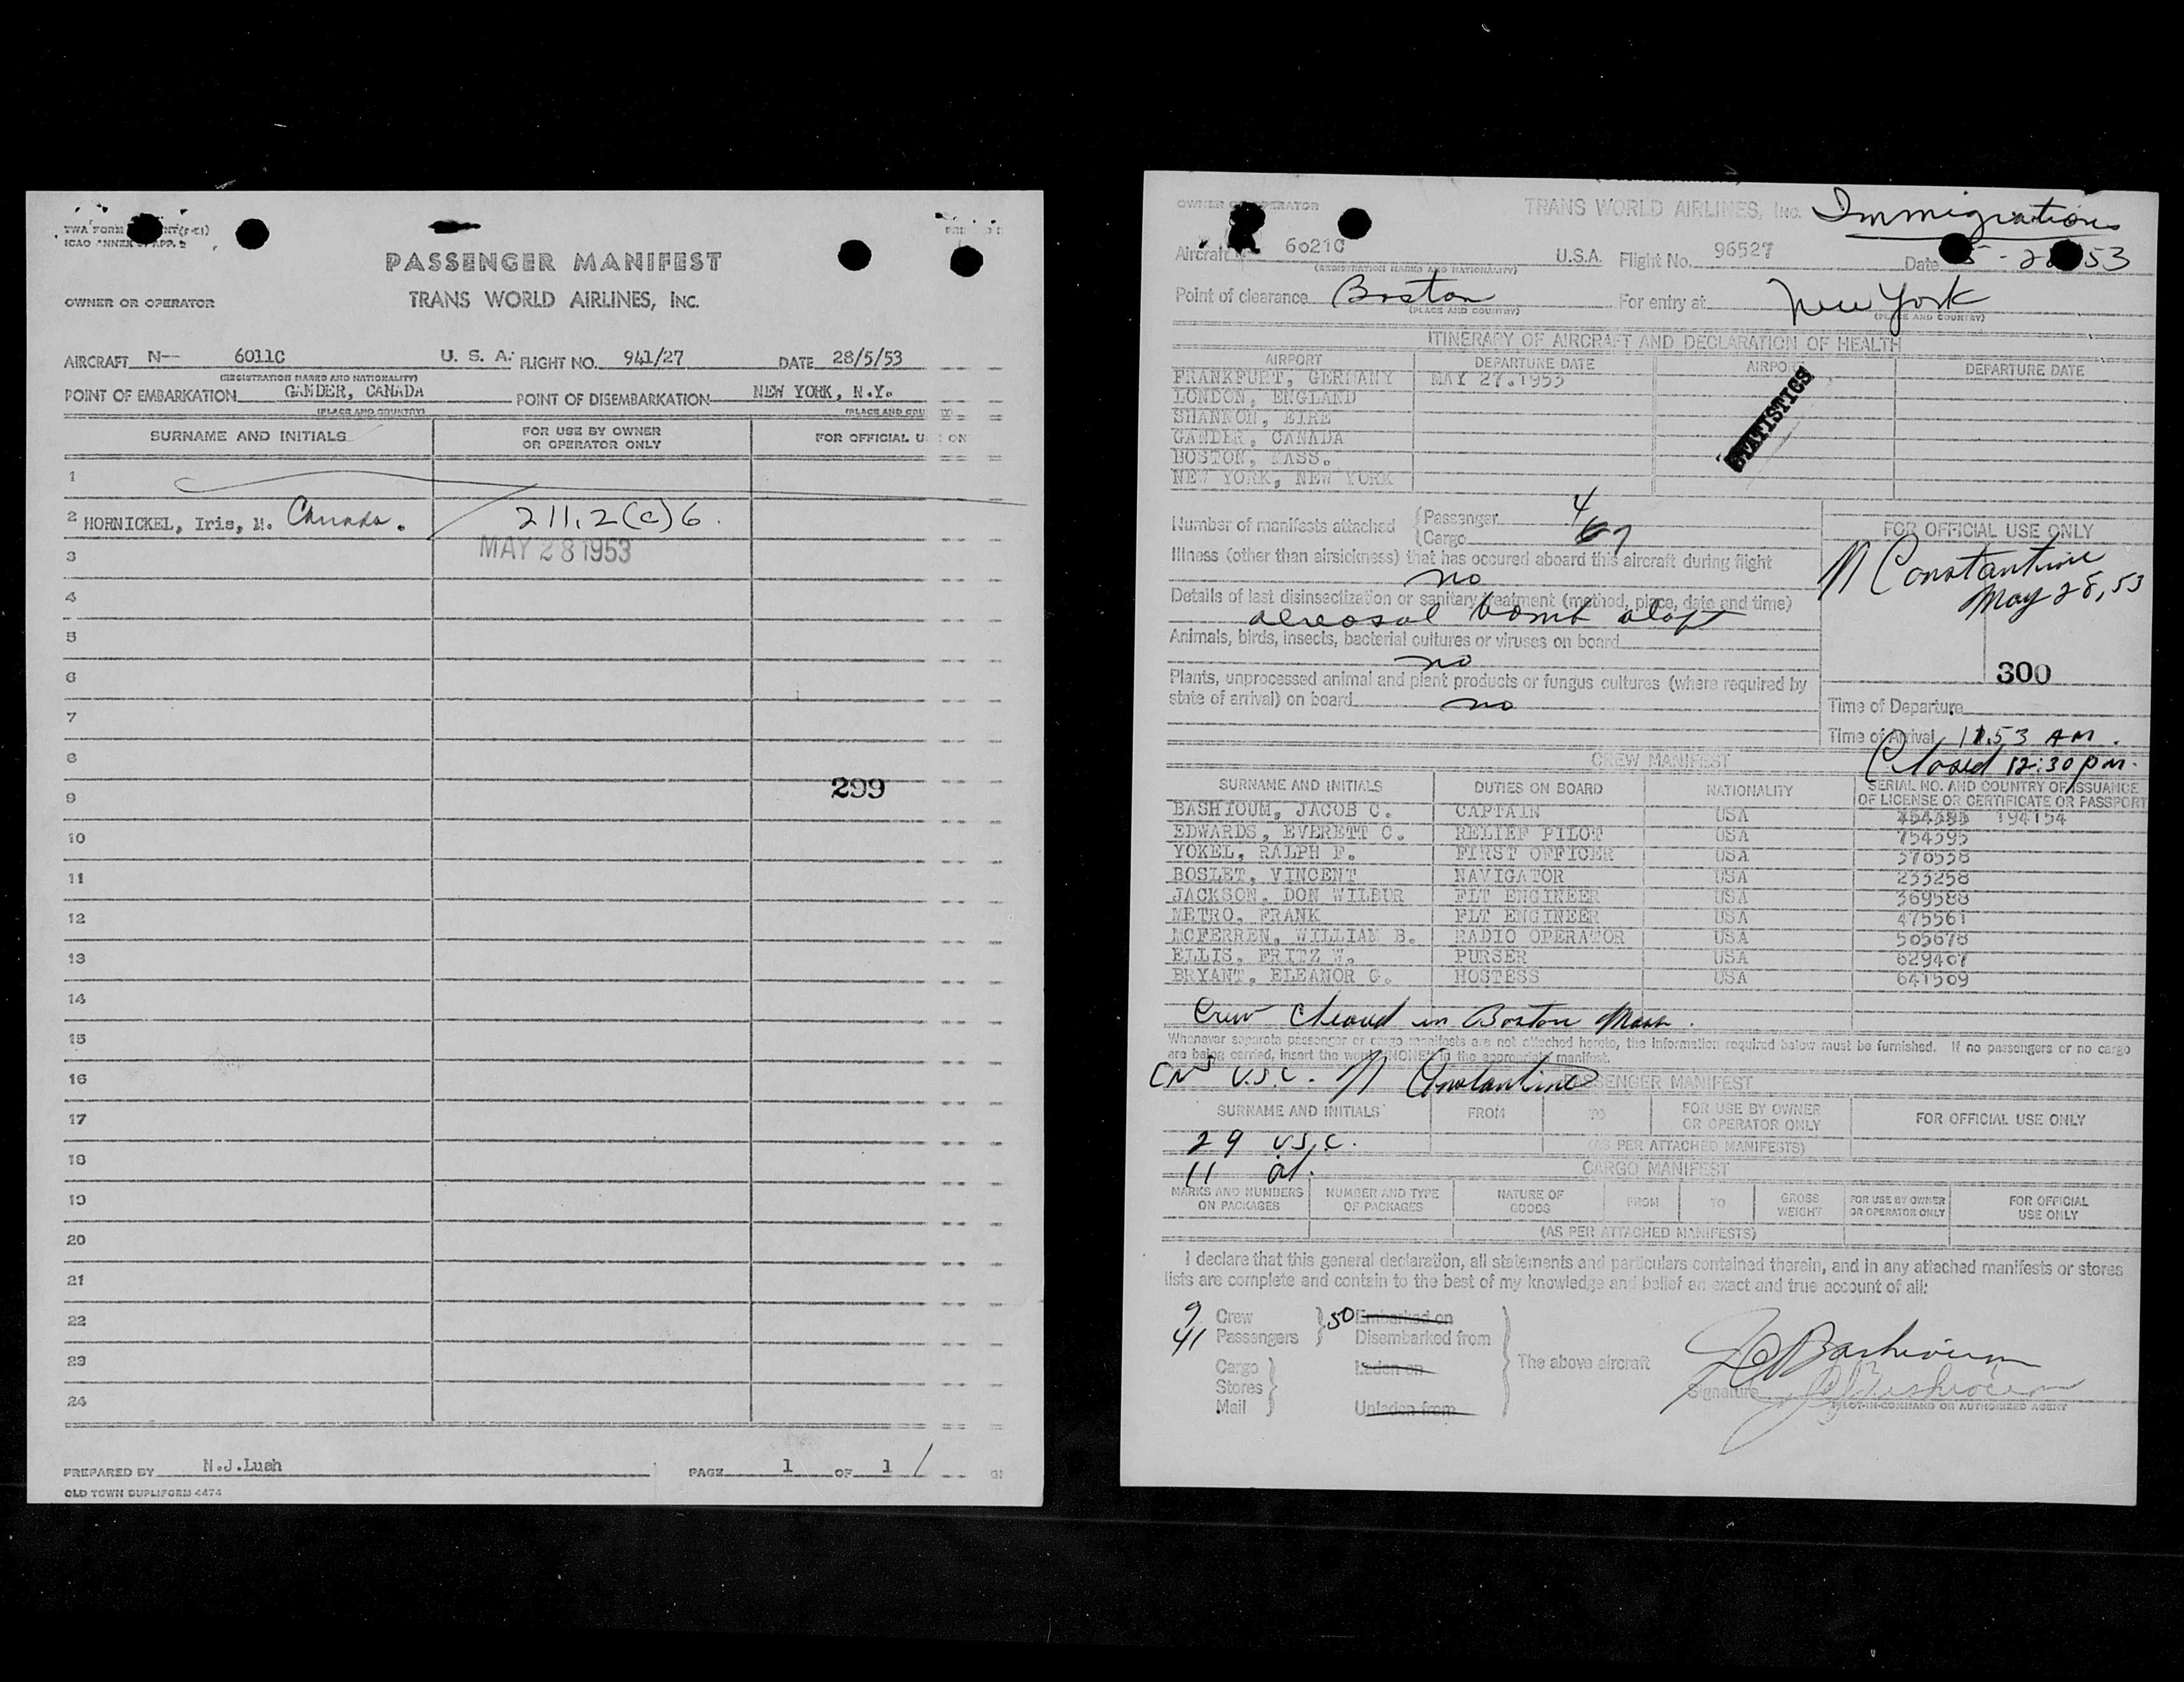 PASSENGER MANIFEST
OWNER OR OPERATOR TRANS WORLD AIRLINES, INC.
AIRCRAFT N-- 6011C U. S. A. FLIGHT NO. 941/27 DATE 28/5/53
(REGISTRATION MARKS AND NATIONALITY)
POINT OF EMBARKATION GANDER, CANADA POINT OF DISEMBARKATION NEW YORK, N.Y.
(PLACE AND COUNTRY)
SURNAME AND INITIALS FOR USE BY OWNER OR OPERATOR ONLY FOR OFFICIAL
1
2 HORNICKEL, Iris, M. Canada. 211.2(c)6.
3 MAY 28 1953
4
5
6
7
8
9 299
10
11
12
13
14
15
16
17
18
19
20
21
22
23
24
PREPARED BY N.J.Lush PAGE 1 OF 1
OLD TOWN DUPLIFORM 4474
OWNER OR OPERATOR TRANS WORLD AIRLINES, INC. Immigrations
Aircraft 6021C U.S.A. Flight No. 96527 Date 53
(REGISTRATION MARKS AND NATIONALITY)
Point of clearance Boston For entry at New York
(PLACE AND COUNTRY) (PLACE AND COUNTRY)
ITINERARY OF AIRCRAFT AND DECLARATION OF HEALTH
AIRPORT DEPARTURE DATE AIRPORT DEPARTURE DATE
FRANKFURT, GERMANY MAY 27.1953
LONDON, ENGLAND
SHANNON, EIRE
GANDER, CANADA
BOSTON, MASS.
NEW YORK, NEW YORK
STATISTICS
Number of manifests attached Passenger 4
Cargo
FOR OFFICIAL USE ONLY
N Constantine
May 28, 53
Illness (other than airsickness) that has occured aboard this aircraft during flight
no
Details of last disinsectization or sanitary treatment (method, place, date and time)
aereosol bomb aloft
Animals, birds, insects, bacterial cultures or viruses on board
no
300
Plants, unprocessed animal and plant products or fungus cultures (where required by
state of arrival) on board no
Time of Departure
Time of Arrival 11.53 AM.
Closed 12:30 pm.
CREW MANIFEST
SURNAME AND INITIALS DUTIES ON BOARD NATIONALITY SERIAL NO. AND COUNTRY OF ISSUANCE OF LICENSE OR CERTIFICATE OR PASSPORT
BASHIOUM, JACOB C. CAPTAIN USA 194154
EDWARDS, EVERETT C. RELIEF PILOT USA 754395
YOKEL, RALPH F. FIRST OFFICER USA 370538
BOSLET, VINCENT NAVIGATOR USA 233258
JACKSON, DON WILBUR FLT ENGINEER USA 369588
METRO, FRANK FLT ENGINEER USA 475561
MCFERREN, WILLIAM B. RADIO OPERATOR USA 505678
ELLIS, FRITZ W. PURSER USA 629407
BRYANT, ELEANOR G. HOSTESS USA 641509
Crew Cleared in Boston Mass.
Whenever separate passenger or cargo manifests are not attached hereto, the information required below must be furnished. If no passengers or no cargo
are being carried, insert the word "NONE" in the appropriate manifest.
U.S.C. N Constantine
PASSENGER MANIFEST
SURNAME AND INITIALS FROM TO FOR USE BY OWNER OR OPERATOR ONLY FOR OFFICIAL USE ONLY
29 U.S.C.
(AS PER ATTACHED MANIFESTS)
11 al.
CARGO MANIFEST
MARKS AND NUMBERS ON PACKAGES NUMBER AND TYPE OF PACKAGES NATURE OF GOODS FROM TO GROSS WEIGHT FOR USE BY OWNER OR OPERATOR ONLY FOR OFFICIAL USE ONLY
(AS PER ATTACHED MANIFESTS)
I declare that this general declaration, all statements and particulars contained therein, and in any attached manifests or stores
lists are complete and contain to the best of my knowledge and belief an exact and true account of all:
9 Crew 50 Embarked on
41 Passengers Disembarked from
Cargo Laden on The above aircraft
Stores
Mail Unladen from
JC Bashioum
Signature JC Bashioum
PILOT-IN-COMMAND OR AUTHORIZED AGENT